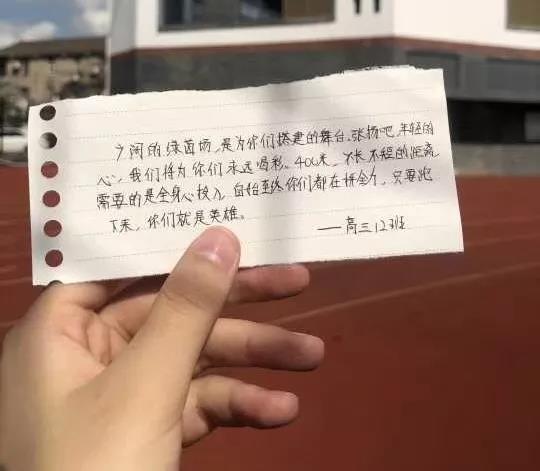 广阔的绿茵场,是为你们搭建的舞台.张扬吧,年轻的
心,我们将为你们永远喝彩。400米,不长不短的距离
需要的是全身心投入,自始至终你们都在拼全力,只要跑
下来,你们就是英雄。
——高三12班